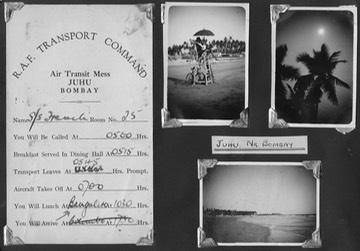 R.A.F. TRANSPORT COMMAND
Air Transit Mess
JUHU
BOMBAY
Name S/S French Room No. 25
You Will Be Called At 0500 Hrs.
Breakfast Served In Dining Hall At 0515 Hrs.
0545
Transport Leaves At Hrs. Prompt.
Aircraft Takes Off At 0700 Hrs.
You Will Lunch At Bangalore 1030 Hrs.
You Will Arrive At Colombo Hrs.
JUHU, NR BOMBAY